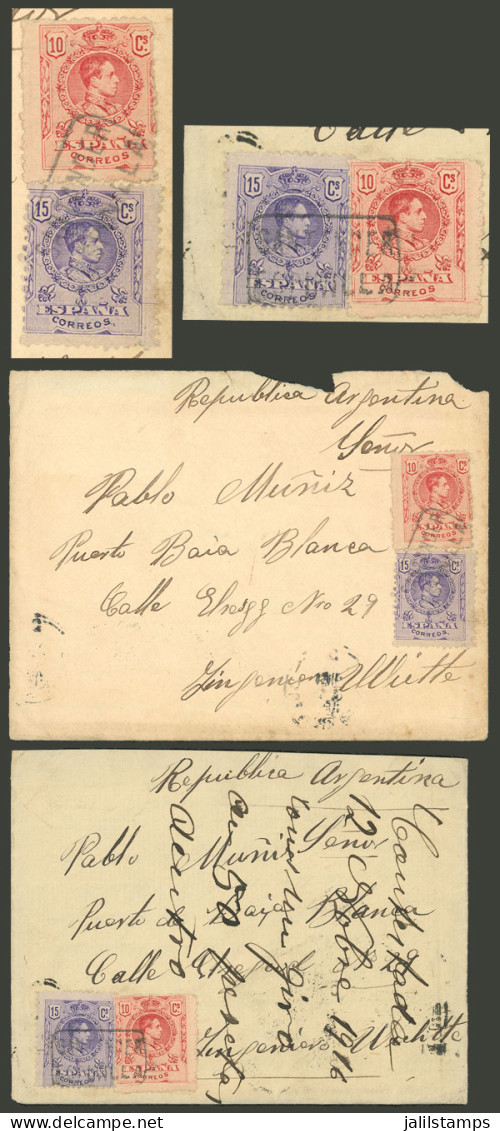 10 Cs
ESPAÑA
CORREOS
15 Cs
ESPAÑA
CORREOS.
Calle
15 Cs
ESPAÑA
CORREOS.
10 Cs
ESPAÑA
CORREOS
Republica Argentina
Señor
Pablo Muñiz
Puerto Baia Blanca
Calle No 29
10 Cs
ESPAÑA
CORREOS
15 Cs
ESPAÑA
CORREOS.
Ingeniero
Republica Argentina
Señor
Pablo Muñiz
Puerto de Baia Blanca
Calle
Ingeniero
Contestada
12 1916
con un giro
de 50 pesetas
dentro
15 Cs
ESPAÑA
CORREOS.
10 Cs
ESPAÑA
CORREOS
www.jalilstamps.com